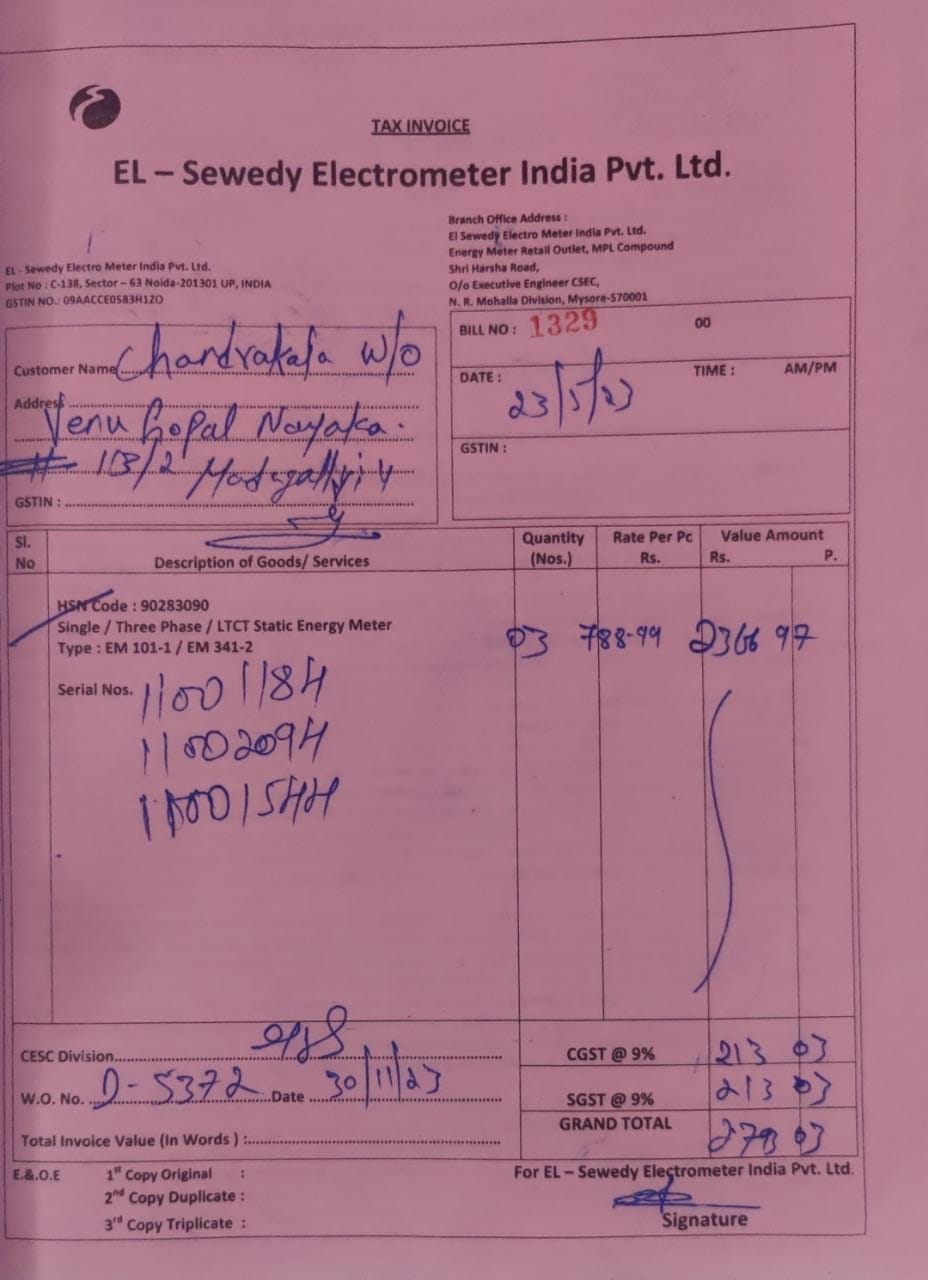 TAX INVOICE
EL – Sewedy Electrometer India Pvt. Ltd.
EL - Sewedy Electro Meter India Pvt. Ltd.
Plot No : C-138, Sector – 63 Noida-201301 UP, INDIA
GSTIN NO.: 09AACCE0583H1ZO
Branch Office Address :
El Sewedy Electro Meter India Pvt. Ltd.
Energy Meter Retail Outlet, MPL Compound
Shri Harsha Road,
O/o Executive Engineer CSEC,
N. R. Mohalla Division, Mysore-570001
Customer Name Chandrakala W/O
Address
Venu Gopal Nayaka.
# 113/2
GSTIN :
BILL NO : 1329 00
DATE : 23/5/23 TIME : AM/PM
GSTIN :
Sl. No Description of Goods/ Services Quantity (Nos.) Rate Per Pc Rs. Value Amount Rs. P.
HSN Code : 90283090
Single / Three Phase / LTCT Static Energy Meter
Type : EM 101-1 / EM 341-2 03 788-99 2366 97
Serial Nos. 11001184
11002094
11001544
CESC Division
W.O. No. D-5372 Date 30/11/23
Total Invoice Value (In Words ) :
CGST @ 9% 213 03
SGST @ 9% 213 03
GRAND TOTAL 2793 03
E.&.O.E 1st Copy Original :
2nd Copy Duplicate :
3rd Copy Triplicate :
For EL – Sewedy Electrometer India Pvt. Ltd.
Signature